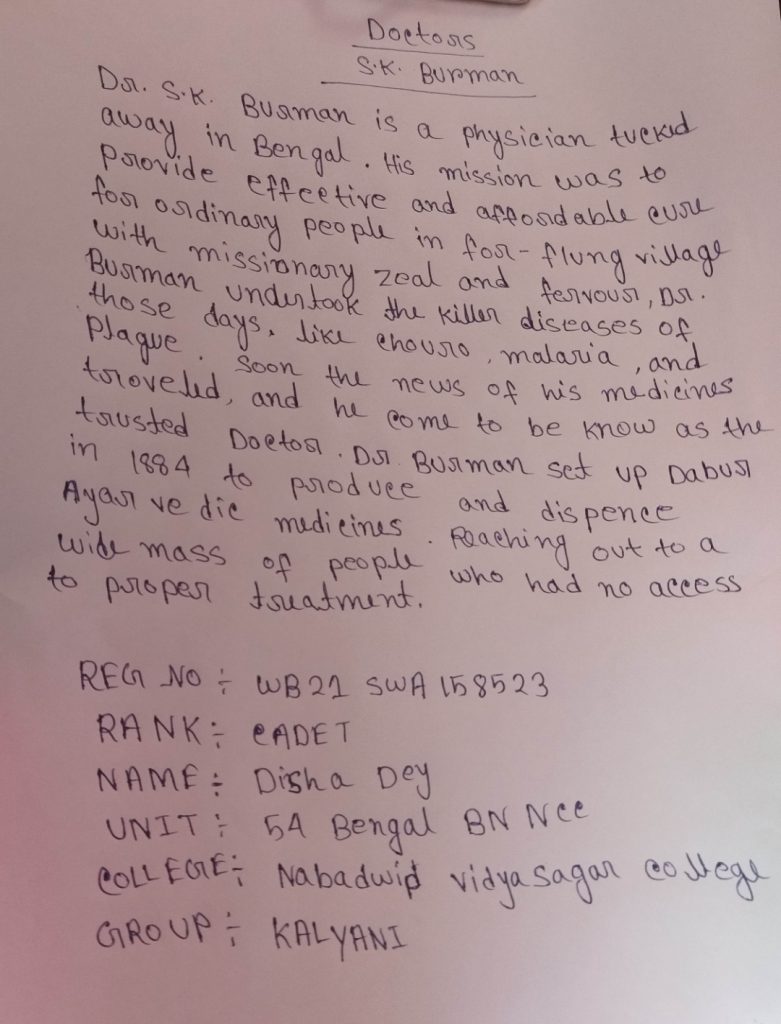 Doctors
S.K. Burman
Dr. S.K. Burman is a physician tuckd
away in Bengal. His mission was to
provide effective and affordable cure
for ordinary people in for-flung village
with missionary zeal and fervour, Dr.
Burman undertook the killer diseases of
those days, like chouro, malaria, and
Plague. Soon the news of his medicines
troveled, and he come to be know as the
trusted Doctor. Dr. Burman set up Dabur
in 1884 to produce and dispence
Ayarvedic medicines. Reaching out to a
wide mass of people who had no access
to proper treatment.
REG NO :- WB21 SWA 158523
RANK :- CADET
NAME :- Disha Dey
UNIT :- 54 Bengal BN NCC
COLLEGE :- Nabadwip vidyasagar college
GROUP :- KALYANI